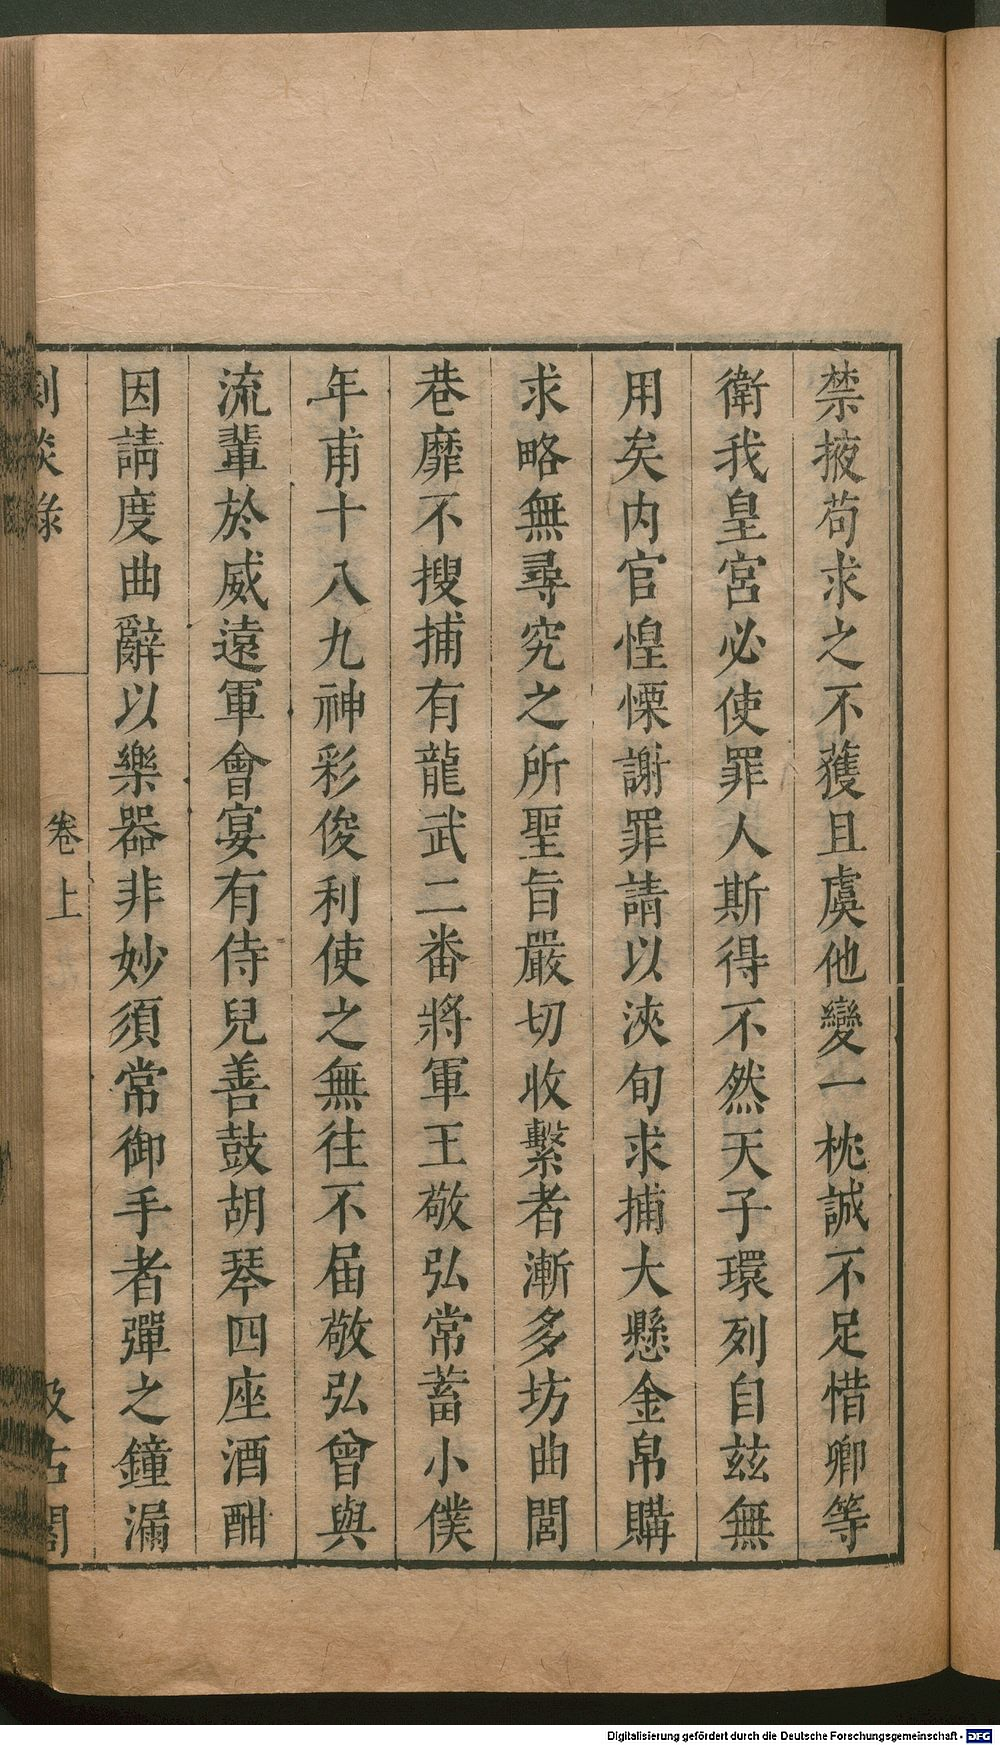 禁掖苟求之不獲且虞他變一枕誠不足惜卿等
衛我皇宮必使罪人斯得不然天子環列自兹無
用矣内官惶慄謝罪請以浹旬求捕大懸金帛購
求略無尋究之所聖旨嚴切收繫者漸多坊曲閭
巷靡不搜捕有龍武二番將軍王敬弘常蓄小僕
年甫十八九神彩俊利使之無往不届敬弘曾與
流輩於威遠軍會宴有侍兒善鼓胡琴四座酒酣
因請度曲辭以樂器非妙須常御手者彈之鐘漏
劇談錄
卷上
汲古閣
Digitalisierung gefördert durch die Deutsche Forschungsgemeinschaft - DFG